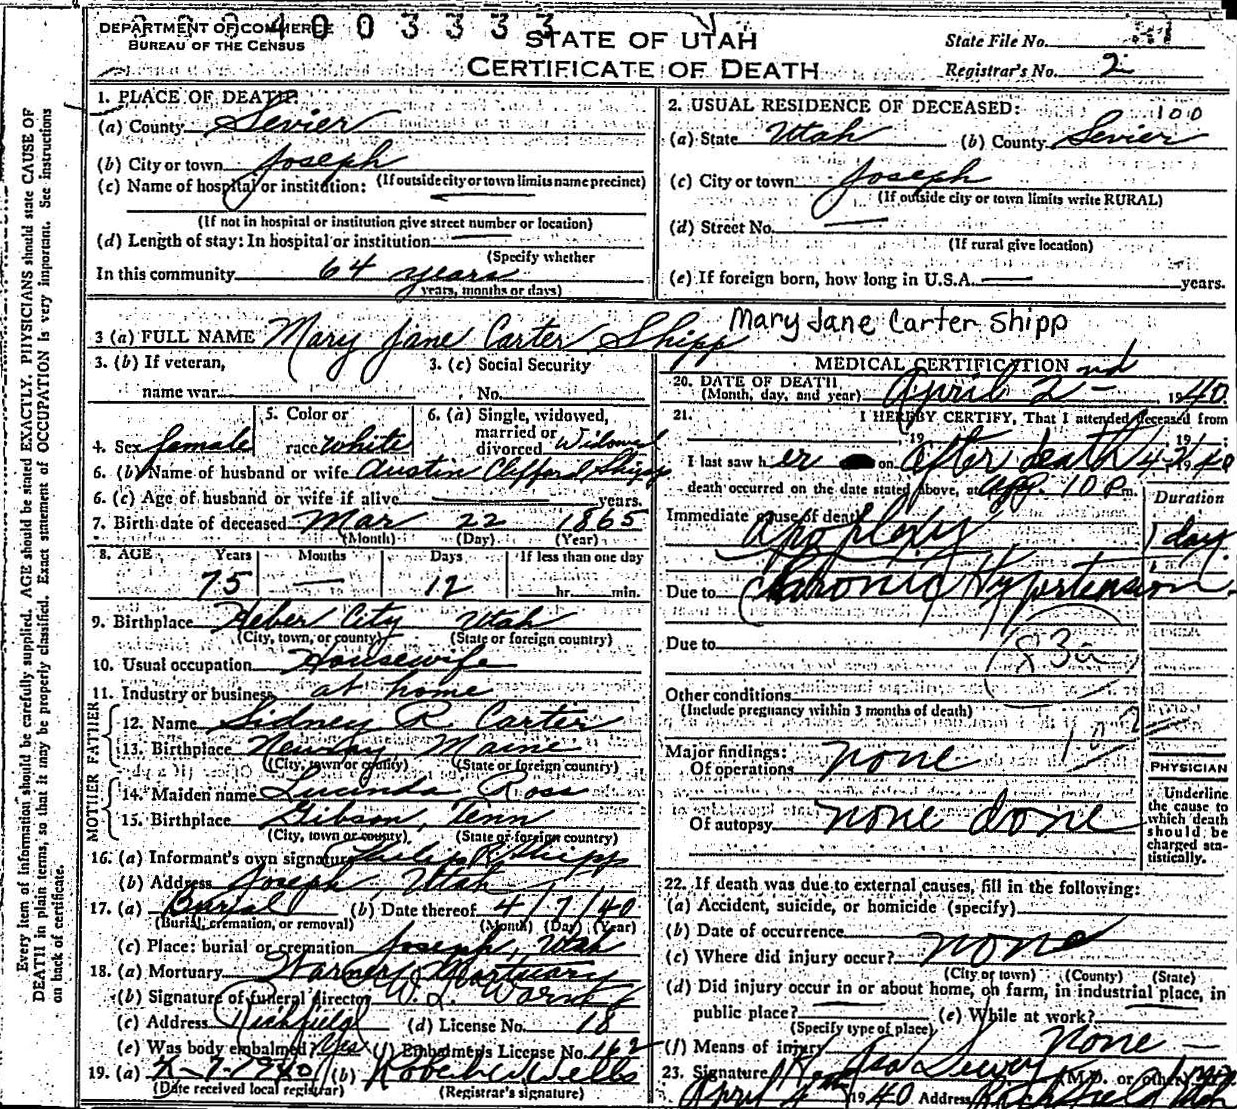 DEPARTMENT OF COMMERCE
BUREAU OF THE CENSUS
400 3333
STATE OF UTAH
CERTIFICATE OF DEATH
State File No.
Registrar's No. 2
1. PLACE OF DEATH:
(a) County Sevier
(b) City or town Joseph
(If outside city or town limits name precinct)
(c) Name of hospital or institution:
(If not in hospital or institution give street number or location)
(d) Length of stay: In hospital or institution
(Specify whether
In this community 64 years
years, months or days)
2. USUAL RESIDENCE OF DECEASED:
100
(a) State Utah (b) County Sevier
(c) City or town Joseph
(If outside city or town limits write RURAL)
(d) Street No.
(If rural give location)
(e) If foreign born, how long in U.S.A. years.
3 (a) FULL NAME Mary Jane Carter Shipp Mary Jane Carter Shipp
3. (b) If veteran,
name war
3. (c) Social Security
No.
4. Sex female
5. Color or
race White
6. (a) Single, widowed,
married or
divorced Widowed
6. (b) Name of husband or wife Austin Clifford Shipp
6. (c) Age of husband or wife if alive years.
7. Birth date of deceased Mar 22 1865
(Month) (Day) (Year)
8. AGE Years Months Days If less than one day
75 — 12 hr. min.
9. Birthplace Heber City Utah
(City, town, or county) (State or foreign country)
10. Usual occupation Housewife
11. Industry or business at home
FATHER
12. Name Sidney R Carter
13. Birthplace Newry Maine
(City, town or county) (State or foreign country)
MOTHER
14. Maiden name Lucinda Ross
15. Birthplace Gibson, Tenn
(City, town or county) (State or foreign country)
16. (a) Informant's own signature Philip R Shipp
(b) Address Joseph, Utah
17. (a) Burial (b) Date thereof 4/7/40
(Burial, cremation, or removal) (Month) (Day) (Year)
(c) Place: burial or cremation Joseph, Utah
18. (a) Mortuary Warner Mortuary
(b) Signature of funeral director W. L. Warner
(c) Address Richfield (d) License No. 18
(e) Was body embalmed? Yes (f) Embalmer's License No. 162
19. (a) 4-7-1940 (b) Robert W Wells
(Date received local registrar) (Registrar's signature)
MEDICAL CERTIFICATION
20. DATE OF DEATH
(Month, day, and year) April 2nd, 1940
21. I HEREBY CERTIFY, That I attended deceased from
19 19 ;
I last saw her on after death 4-2 1940
death occurred on the date stated above, at app. 10 P m.
Duration
Immediate cause of death
Apoplexy 1 day
Due to Chronic Hypertension
Due to
83a
Other conditions
(Include pregnancy within 3 months of death)
102
Major findings:
Of operations none
Of autopsy none done
PHYSICIAN
Underline
the cause to
which death
should be
charged sta-
tistically.
22. If death was due to external causes, fill in the following:
(a) Accident, suicide, or homicide (specify)
(b) Date of occurrence
(c) Where did injury occur? none
(City or town) (County) (State)
(d) Did injury occur in or about home, on farm, in industrial place, in
public place? (e) While at work?
(Specify type of place)
(f) Means of injury None
23. Signature Dewey (M.D. or other) M.D.
April 4th 1940 Address Richfield Utah
Every item of information should be carefully supplied. AGE should be stated EXACTLY. PHYSICIANS should state CAUSE OF
DEATH in plain terms, so that it may be properly classified. Exact statement of OCCUPATION is very important. See instructions
on back of certificate.